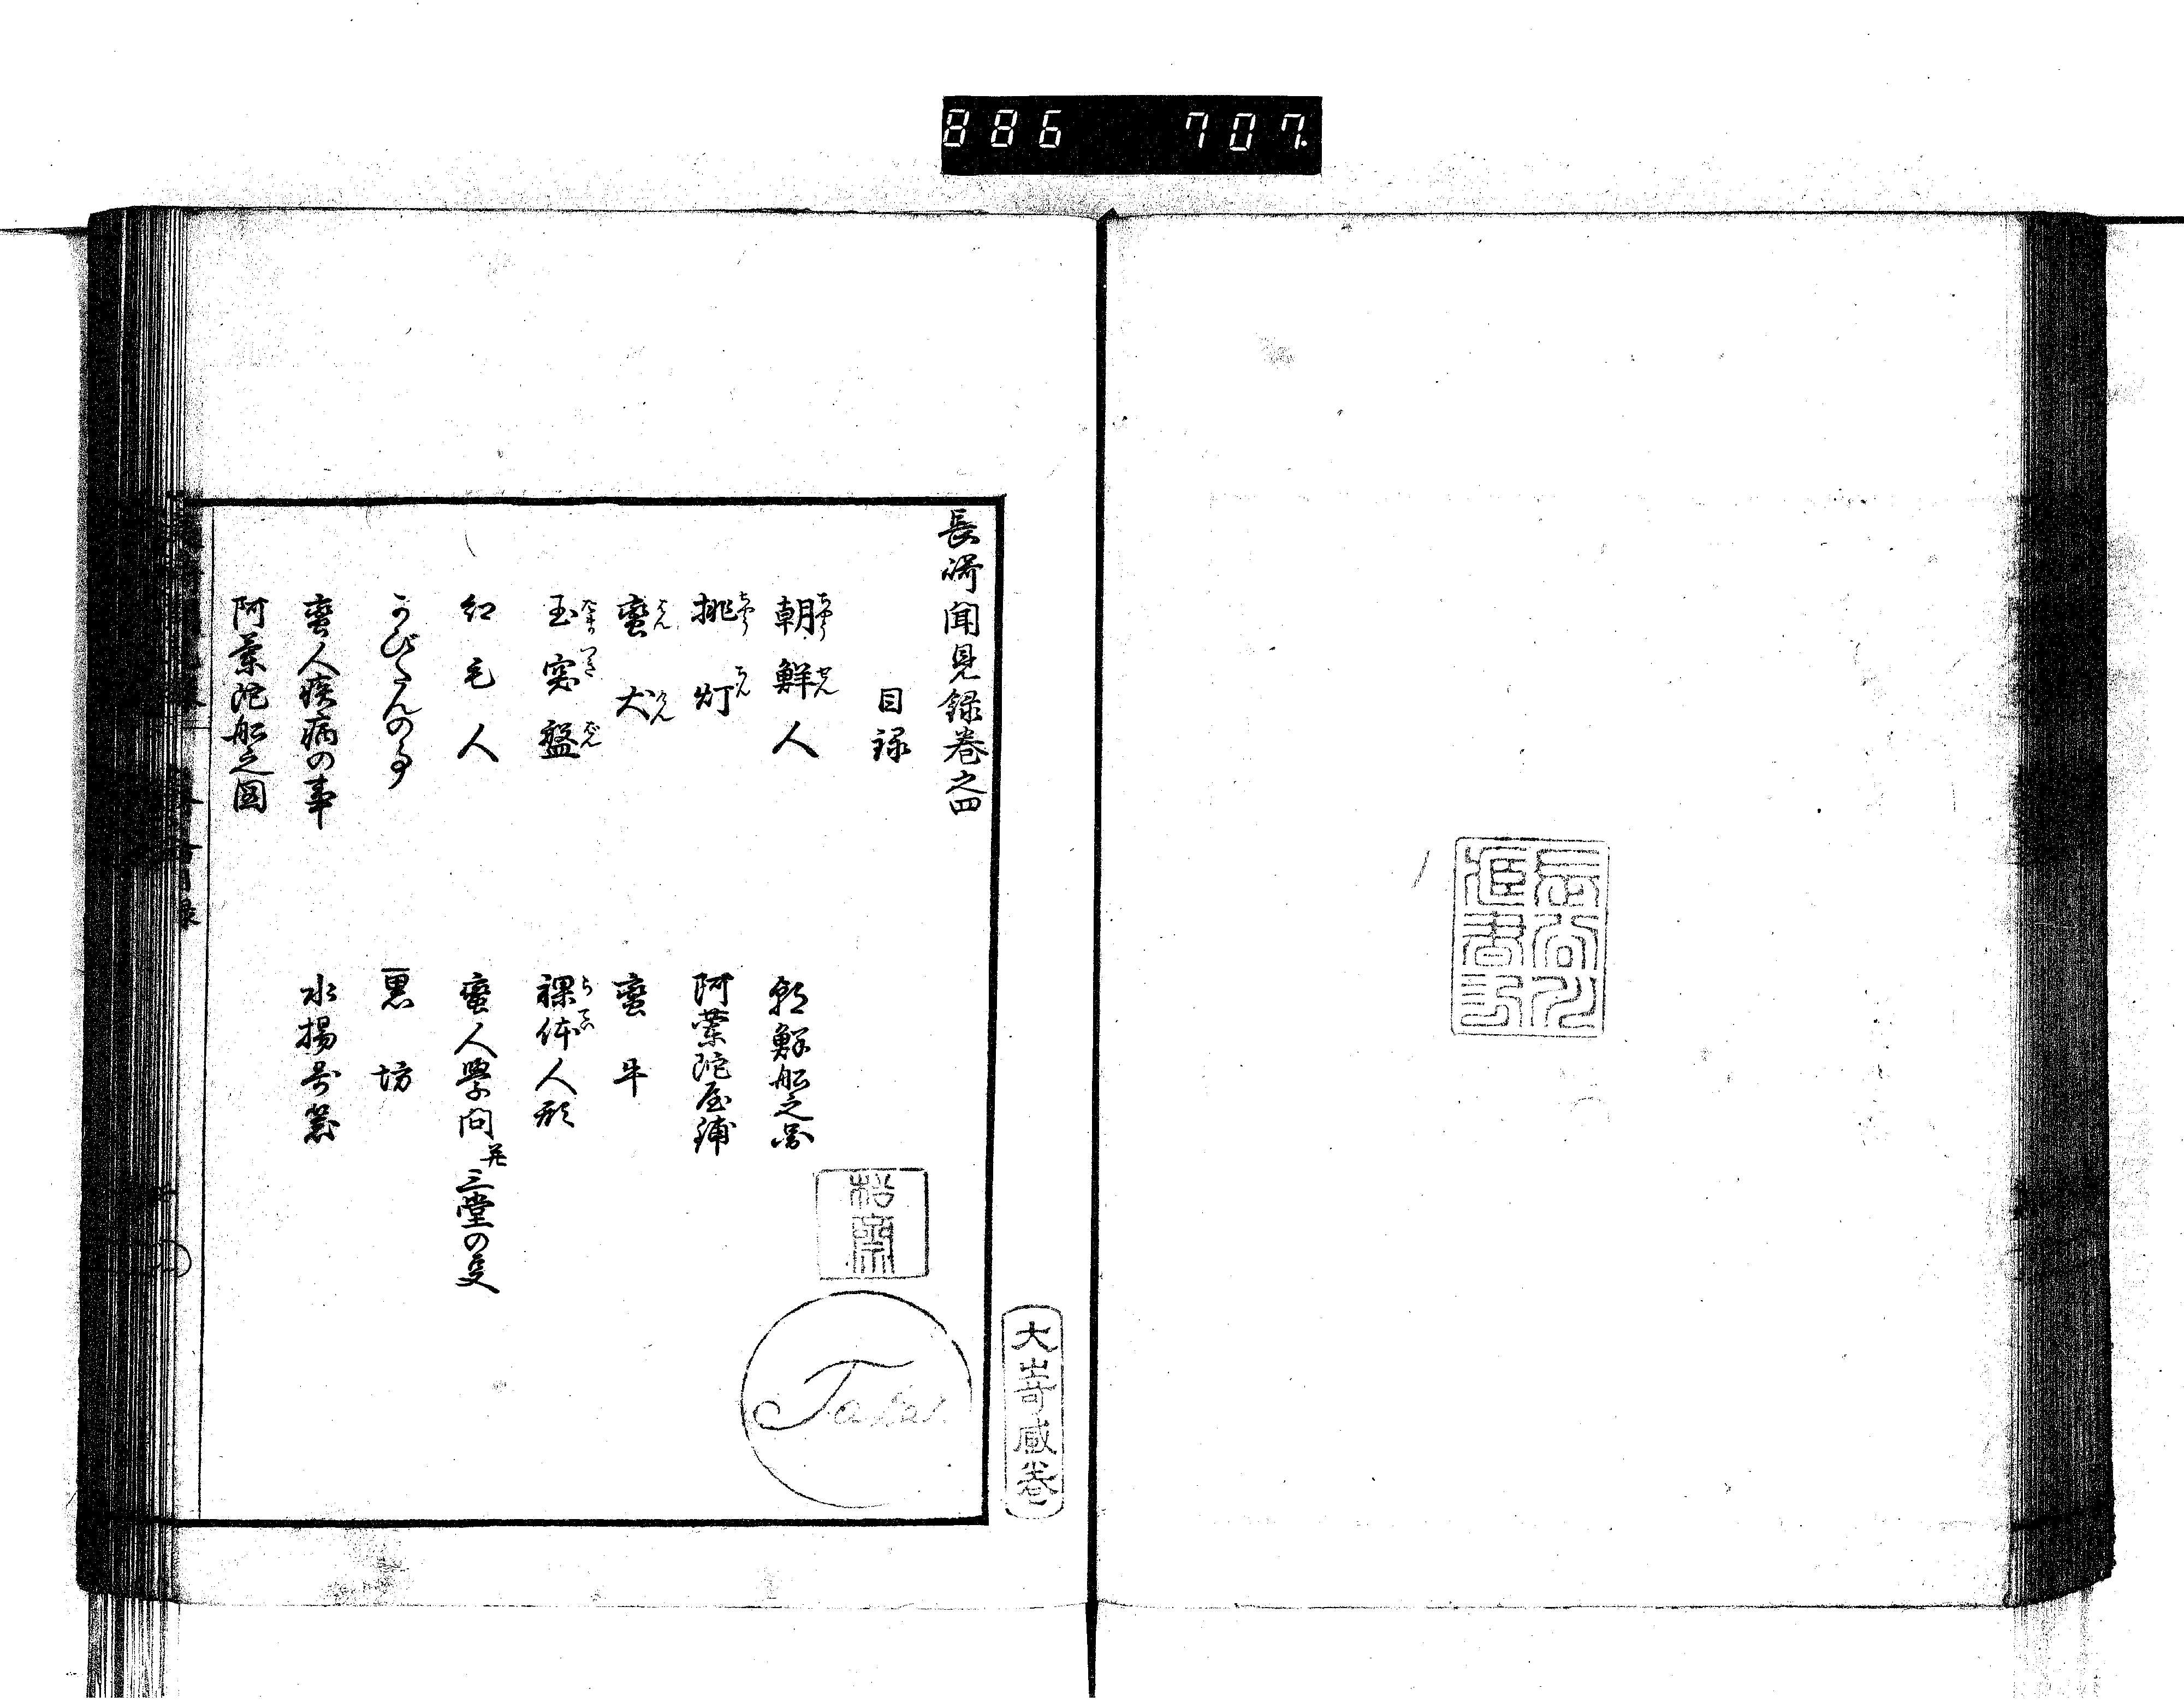 886 707.
長崎聞見録巻之四
目録
朝鮮人
朝鮮舩之啚
挑灯
阿蘭陀屋鋪
蛮犬
蛮牛
玉突盤
裸体人形
紅毛人
蛮人學問并三堂の叓
かびたんの事
黒坊
蛮人疾病の事
水揚号器
阿蘭陀舩之圖
松齋
大嵜蔵巻